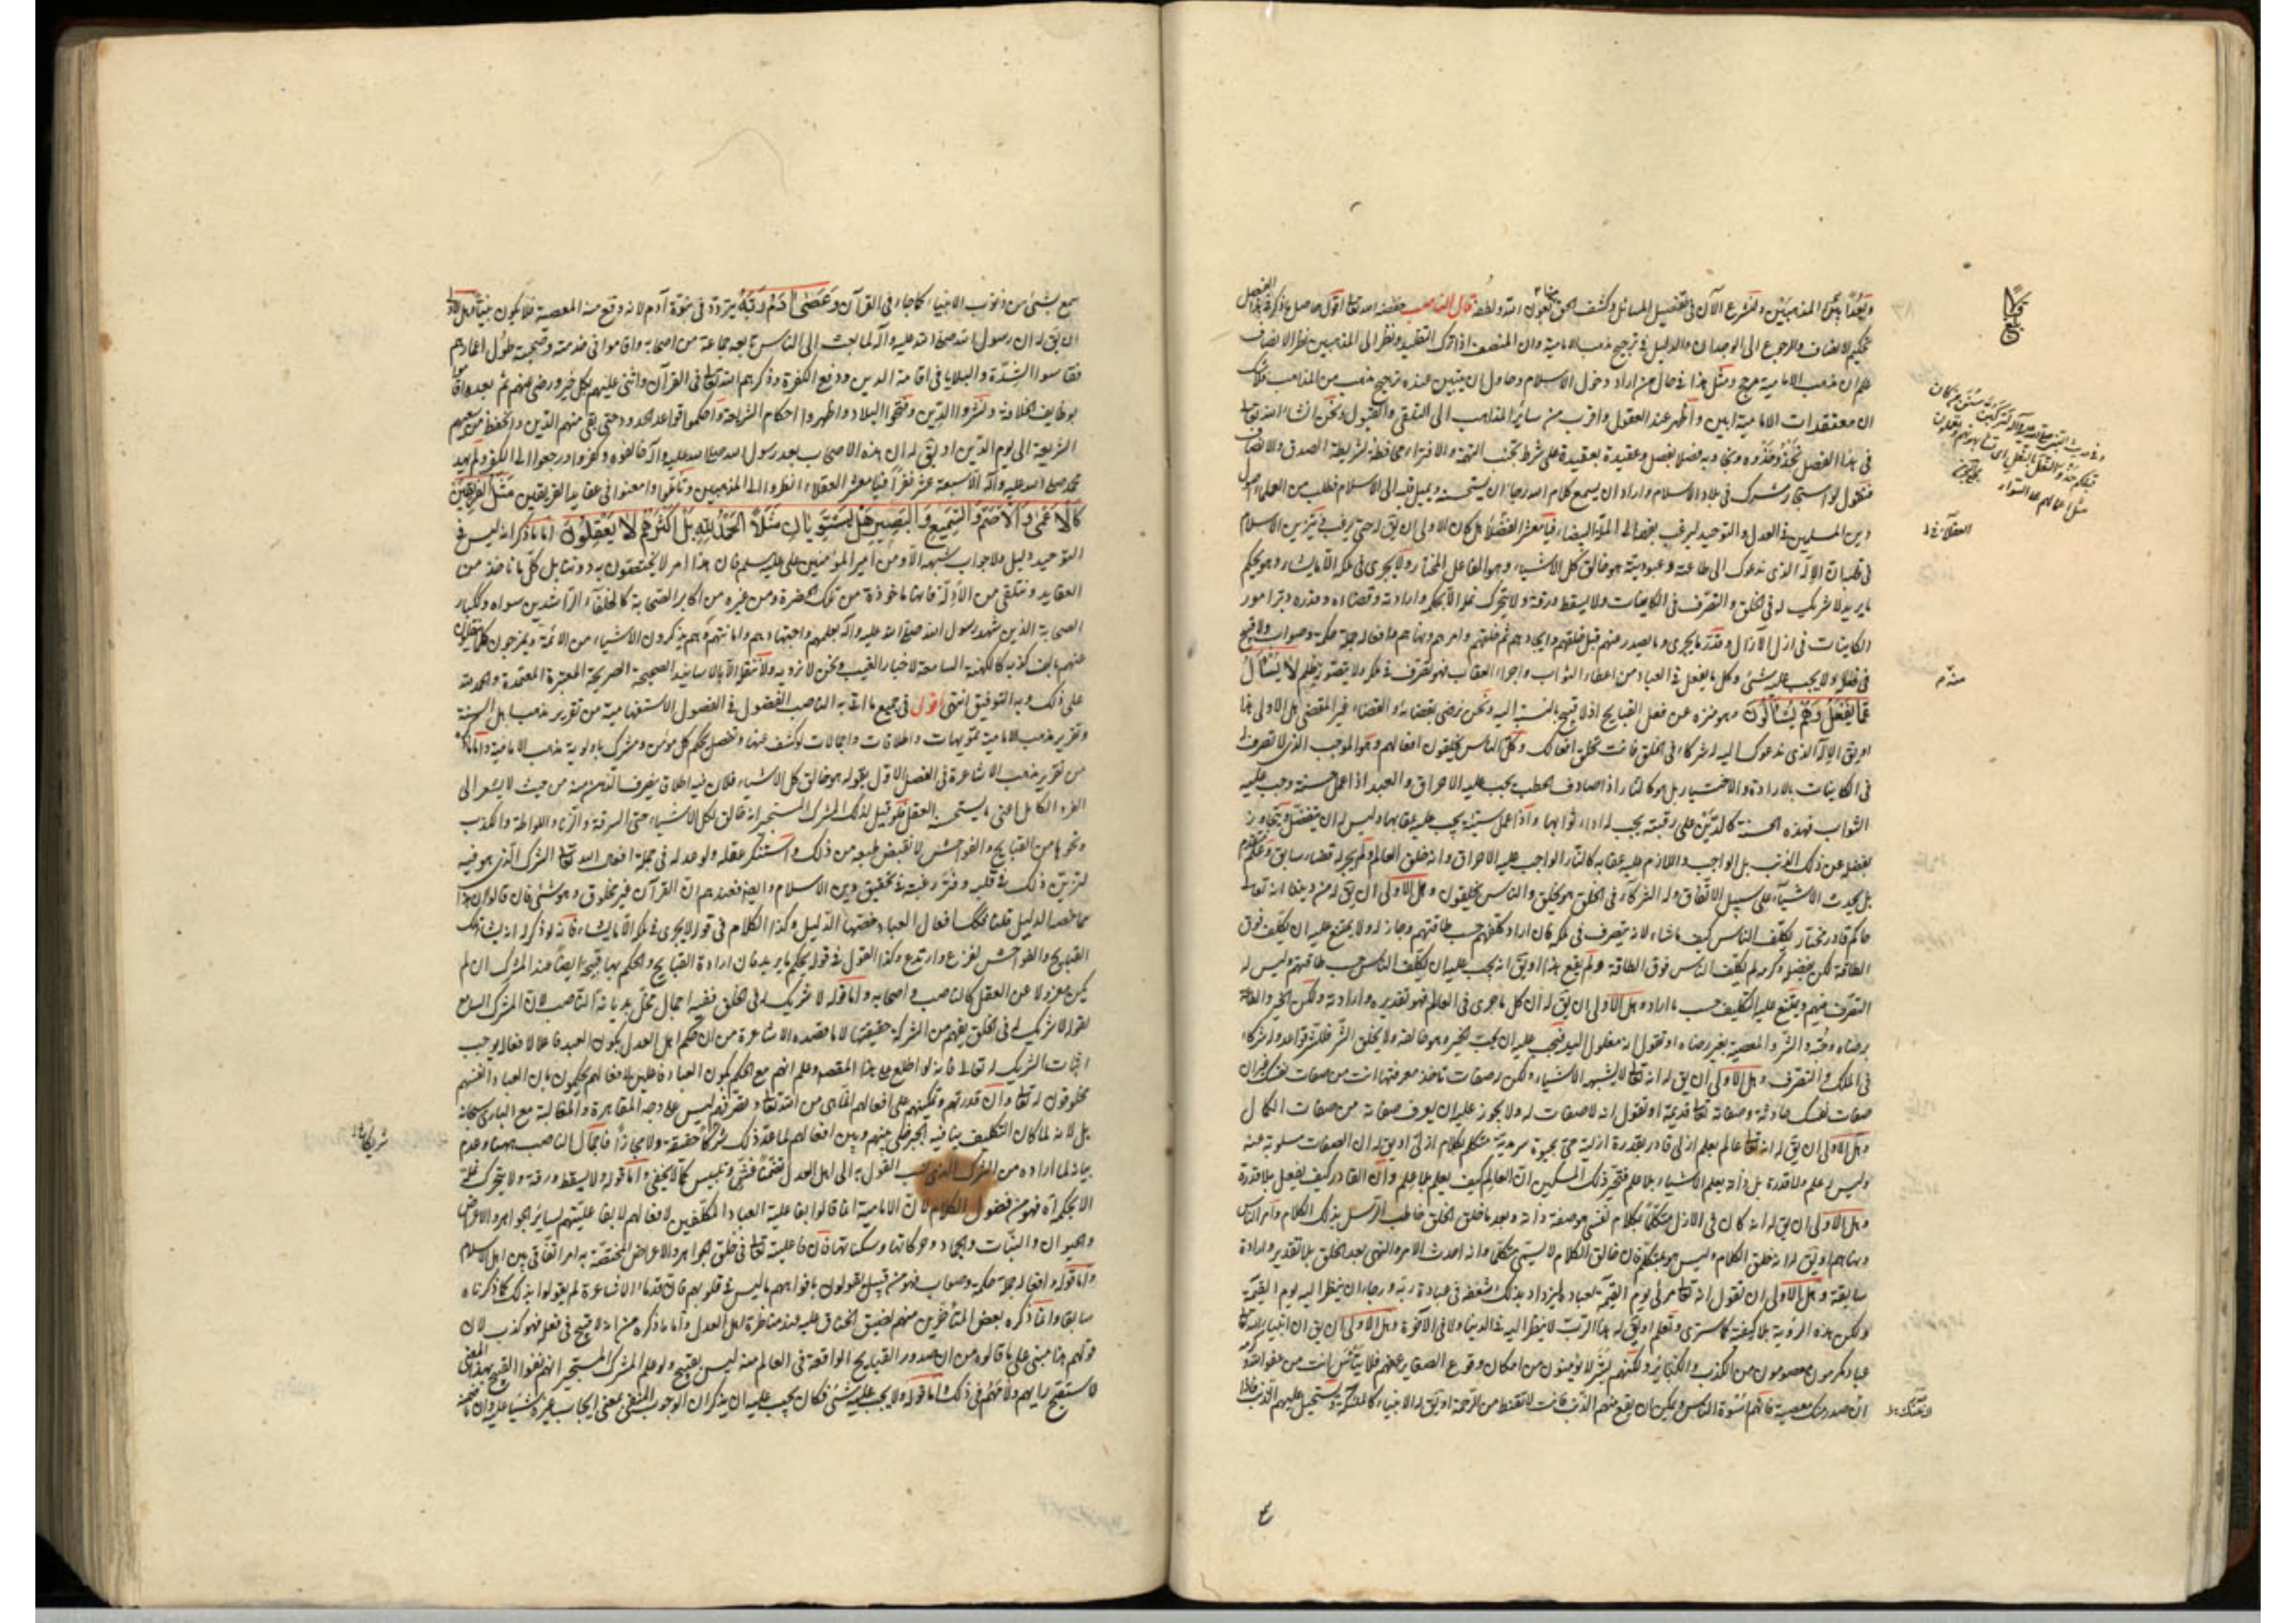 وبعدًا بين المذهبين ولنشرع الآن في تفصيل المسائل وكشف الحق بعون الله ولطفه قال الناصب خفضه الله تعالى أقول حاصل ما ذكره في هذا الفصل
تحكيم الانصاف والرجوع الى الوجدان والدليل في ترجيح مذهب الامامية وان المنصف اذا ترك التقليد ونظر الى المذهبين نظر الانصاف
علم ان مذهب الامامية مرجح ومثل هذا في حال من اراد دخول الاسلام وحاول ان يتبين عنده ترجيح مذهب من المذاهب فلا شك
ان معتقدات الامامية ابين واظهر عند العقول واقرب من سائر المذاهب الى التلقي والقبول ونحن ان شاء الله تعالى
في هذا الفصل نحذو حذوه ونجاوبه فصلا بفصل وعقيدة بعقيدة على شرط تجنب التهمة والافتراء ومحافظة شريطة الصدق والانصاف
فنقول لو استجار مشرك في بلاد الاسلام واراد ان يسمع كلام الله رجاء ان يستحسنه ويميل قلبه الى الاسلام فطلب من العلماء اصول
دين المسلمين في العدل والتوحيد ليرغب بفهمها الى الملة البيضاء فيا معشر الفضلاء هل كان الاولى ان يقال له حتى يرغب في تزيين الاسلام
في قلبه ان الاله الذي ندعوك الى طاعته وعبوديته هو خالق كل الاشياء وهو الفاعل المختار ولا يجري في ملكه الا ما يشاء وهو يحكم
ما يريد لا شريك له في الخلق والتصرف في الكاينات ولا يسقط ورقة ولا يتحرك نملة الا بحكمه وارادته وقضاءه وقدره دبر امور
الكاينات في ازل الآزال وقدر ما يجري وما يصدر عنهم قبل خلقهم وايجادهم ثم خلقهم وامرهم ونهاهم وافعاله جملة حكمة وصواب ولا قبيح
في فعله ولا يجب عليه شئ وكل ما يفعل في العباد من اعطاء الثواب واجراء العقاب فهو تصرف في ملكه ولا يتصور منه ظلم لا يُسْأَلُ
عَمَّا يَفْعَلُ وَهُمْ يُسْأَلُونَ وهو منزه عن فعل القبايح اذ لا قبيح بالنسبة اليه ونحن نرضى بقضائه والقضاء غير المقضي هل الاولى هذا
او يق الاله الذي ندعوك اليه له شركاء في الخلق فانت تخلق افعالك وكل الناس يخلقون افعالهم وهو الموجب الذي لا تصرف له
في الكاينات بالارادة والاختيار بل هو كالنار اذا صادف الحطب يجب عليه الاحراق والعبد اذا عمل حسنة وجب عليه
الثواب فهذه الحسنة كالدين على رقبته يجب له اداء ثوابها واذا عمل سيئة يجب عليه عقابها وليس له ان يتفضل ويتجاوز
بفضله عن ذلك الذنب بل الواجب واللازم عليه عقابه كالنار الواجب عليه الاحراق وانه خلق العالم ولم يجر له قضاء سابق وعلم متقدم
بل يحدث الاشياء على سبيل الاتفاق وله الشركاء في الخلق هو يخلق والناس يخلقون وهل الاولى ان يق له من ديننا انه تعالى
حاكم قادر مختار يكلف الناس كيف ما شاء لانه يتصرف في ملكه فان اراد كلفهم حسب طاقتهم وجاز له ولا يمتنع عليه ان يكلف فوق
الطاقة لكن بفضله وكرمه لم يكلف الناس فوق الطاقة ولم يقع هذا او يق انه يجب عليه ان يكلف الناس حسب طاقتهم وليس له
التصرف فيهم ويمتنع عليه التكليف حسب ما اراد وهل الاولى ان يق له ان كل ما جرى في العالم فهو تقديره وارادته ولكن الخير والطاعة
برضاه وحبه والشر والمعصية بغير رضاه او تقول انه مغلول اليد فيجب عليه ان يحب الخير وهو خالقه ولا يخلق الشر فللشر فواعل وله شركاء
في الملك والتصرف وهل الاولى ان يق له انه تعالى لا يشبه الاشياء ولكن له صفات تاخذ معرفتها انت من صفات نفسك غير ان
صفات نفسك حادثة وصفاته تعالى قديمة او تقول انه لا صفات له ولا يجوز عليه ان يعرف صفاته من صفات الكمال
وهل الاولى ان يق له انه تعالى عالم بعلم ازلي قادر بقدرة ازلية حي بحيوة سرمدية متكلم بكلام ازلي او يق له ان الصفات مسلوبة عنه
وليس له علم ولا قدرة بل ذاته يعلم الاشياء بلا علم فتحير ذلك المسكين ان العالم كيف يعلم بلا علم وان القادر كيف يفعل بلا قدرة
وهل الاولى ان يق له انه كان في الازل متكلما بكلام نفسي هو صفة ذاته وبعد ما خلق الخلق خاطب الرسل بذلك الكلام وامر الناس
ونهاهم او يق له انه خلق الكلام وليس هو بمتكلم فان خالق الكلام لا يسمى متكلما وانه احدث الامر والنهي بعد الخلق بلا تقدير وارادة
سابقة وهل الاولى ان تقول انه تعالى مرئي يوم القيمة لعباده ليزداد بذلك شغفه في عبادة ربه ورجاء ان ينظر اليه يوم القيمة
ولكن هذه الرؤية بلا كيفية كما سترى وتعلم او يق له هذا الرب لا ينظر اليه في الدنيا ولا في الآخرة وهل الاولى ان يق ان انبياء الله تعالى
عباد مكرمون معصومون من الكذب والكبائر ولكنهم بشر لا يؤمنون من امكان وقوع الصغاير عنهم فلا تيأس انت من عفو الله وكرمه
ان صدر منك معصية فانهم اسوة الناس ويمكن ان يقع منهم الذنب فانت لا تقنط من الرحمة او يق له الانبياء كالملئكة يستحيل عليهم الذنب فاذا
العقلاء خ ل
منه م
سمع بشئ من ذنوب الانبياء كما جاء في القرآن وَعَصى آدَمُ رَبَّهُ يتردد في نبوة آدم لانه وقع منه المعصية فلا يكون نبيا وهل الاولى
ان يق له ان رسول الله صلى الله عليه وآله لما بعث الى الناس تابعه جماعة من اصحابه واقاموا في خدمته وصحبته طول اعمارهم
فقاسوا الشدة والبلايا في اقامة الدين ودفع الكفرة وذكرهم الله تعالى في القرآن واثنى عليهم بكل خير ورضي عنهم ثم بعده اقاموا
بوظايف الخلافة ونشروا الدين وفتحوا البلاد واظهروا احكام الشريعة واحكموا قواعد الحدود حتى بقى منهم الدين وانحفظ من سعيهم
الشريعة الى يوم الدين او يق له ان هذه الاصحاب بعد رسول الله صلى الله عليه وآله خالفوه وكفروا ورجعوا الى الكفر ولم يهد
محمد صلى الله عليه وآله الا سبعة عشر نفرا فيا معشر العقلاء انظروا الى المذهبين وتأملوا وامعنوا في عقايد الفريقين مَثَلُ الْفَرِيقَيْنِ
كَالْأَعْمى وَالْأَصَمِّ وَالسَّمِيعِ وَالْبَصِيرِ هَلْ يَسْتَوِيَانِ مَثَلًا الْحَمْدُ لِلَّهِ بَلْ أَكْثَرُهُمْ لَا يَعْقِلُونَ اما ما ذكر انه ليس في
التوحيد دليل ولا جواب شبهه الا ومن امير المؤمنين على عليه سلم فان هذا امر لا يختصون به ونقابل كل ما ناخذ من
العقايد ونتلقى من الادلة فانها ماخوذة من تلك الحضرة ومن غيره من اكابر الصحابة كالخلفاء الراشدين سواه وككبار
الصحابة الذين شهد رسول الله صلى الله عليه وآله بعلمهم واجتهادهم وامانتهم وهم يذكرون الاشياء من الائمة ويمزجون كل ما ينقلون
عنهم بالف كذبة كالكهنة السامعة لاخبار الغيب ونحن لا نرويه ولا ننقل الا بالاسانيد الصحيحة الصريحة المعتبرة المعتمدة والحمد لله
على ذلك وبه التوفيق انتهى اقول في جميع ما اتى به الناصب الفضول في الفصول الاستفهامية من تقرير مذهب اهل السنة
وتقرير مذهب الامامية تمويهات واطلاقات واجمالات لو كشف عنها وفصل يحكم كل مؤمن ومشرك باولوية مذهب الامامية واما ما ذكره
من تقرير مذهب الاشاعرة في الفصل الاول بقوله هو خالق كل الاشياء فلان فيه اطلاق ينصرف الذهن منه من حيث لا يشعر الى
الفرد الكامل اعني ما يستحسنه العقل فلو قيل لذلك المشرك المستجير انه خالق لكل الاشياء حتى السرقة والزناء واللواطة والكذب
ونحوها من القبايح والفواحش لانقبض طبعه من ذلك واستنكر عقله ولو عد له في جملة افعال الله تعالى الشرك الذي هو فيه
لتزين ذلك في قلبه وفتر رغبته في تحقيق دين الاسلام وايضا فعندهم ان القرآن غير مخلوق وهو شئ فان قالوا ان هذا
مما خصه الدليل قلنا فكذلك افعال العباد خصتها الدليل وكذا الكلام في قوله لا يجري في ملكه الا ما يشاء فانه لو ذكر له انه يشاء تلك
القبايح والفواحش لفزع وارتدع وكذا القول في قوله يحكم ما يريد فان ارادة القبايح والحكم بها قبيحة ايضا عند المشرك ان لم
يكن معزولا عن العقل كالناصب واصحابه واما قوله لا شريك له في الخلق ففيه اجمال مخل بديانة الناصب لان المشرك السامع
لقوله لا شريك له في الخلق يفهم من الشركة حقيقتها لا ما قصده الاشاعرة من ان حكم اهل العدل بكون العبد فاعلا لافعاله يوجب
اثبات الشريك له تعالى فانه لو اطلع على هذا المقصد وعلم انهم مع الحكم بكون العباد فاعلين لافعالهم يحكمون بان العباد انفسهم
مخلوقون له تعالى وان قدرتهم وتمكينهم على افعالهم انما هي من الله تعالى وتصرفهم ليس على وجه المقاهرة والمغالبة مع البارى سبحانه
بل لانه لما كان التكليف ينافيه الجبر خلى بينهم وبين افعالهم لما عد ذلك شركا حقيقة ولا مجازا فاجمال الناصب ههنا وعدم
بيانه لما اراده من الشرك الذي نسب القول به الى اهل العدل تعنتا غش وتلبيس كما لا يخفى واما قوله ولا يسقط ورقة ولا يتحرك نملة
الا بحكمه آه فهو من فضول الكلام لان الامامية انما قالوا بفاعلية العباد المكلفين لافعالهم لا بفاعليتهم لساير الجواهر والاعراض
والحيوان والنبات والجماد وحركاتها وسكناتها فان فاعليته تعالى في خلق الجواهر والاعراض المختصة به امر اتفاقي بين اهل الاسلام
واما قوله وافعاله جملة حكمة وصواب فهو من قبيل يقولون بافواههم ما ليس في قلوبهم فان قدماء الاشاعرة لم يقولوا بذلك كما ذكرناه
سابقا وانما ذكره بعض المتأخرين منهم لضيق الخناق عليه عند مناظرة اهل العدل واما ما ذكره من انه لا قبيح في فعله فهو كذب لان
قولهم هذا مبني على ما قالوه من ان صدور القبايح الواقعة في العالم منه ليس بقبيح ولو علم المشرك المستجير انهم نفوا القبيح بهذا المعنى
لاستقبح رايهم ولامهم في ذلك واما قوله ولا يجب عليه شئ فكان يجب عليه ان يذكر ان الوجوب المنفى بمعنى ايجاب غيره شيئا عليه وان
شريكا خ ل